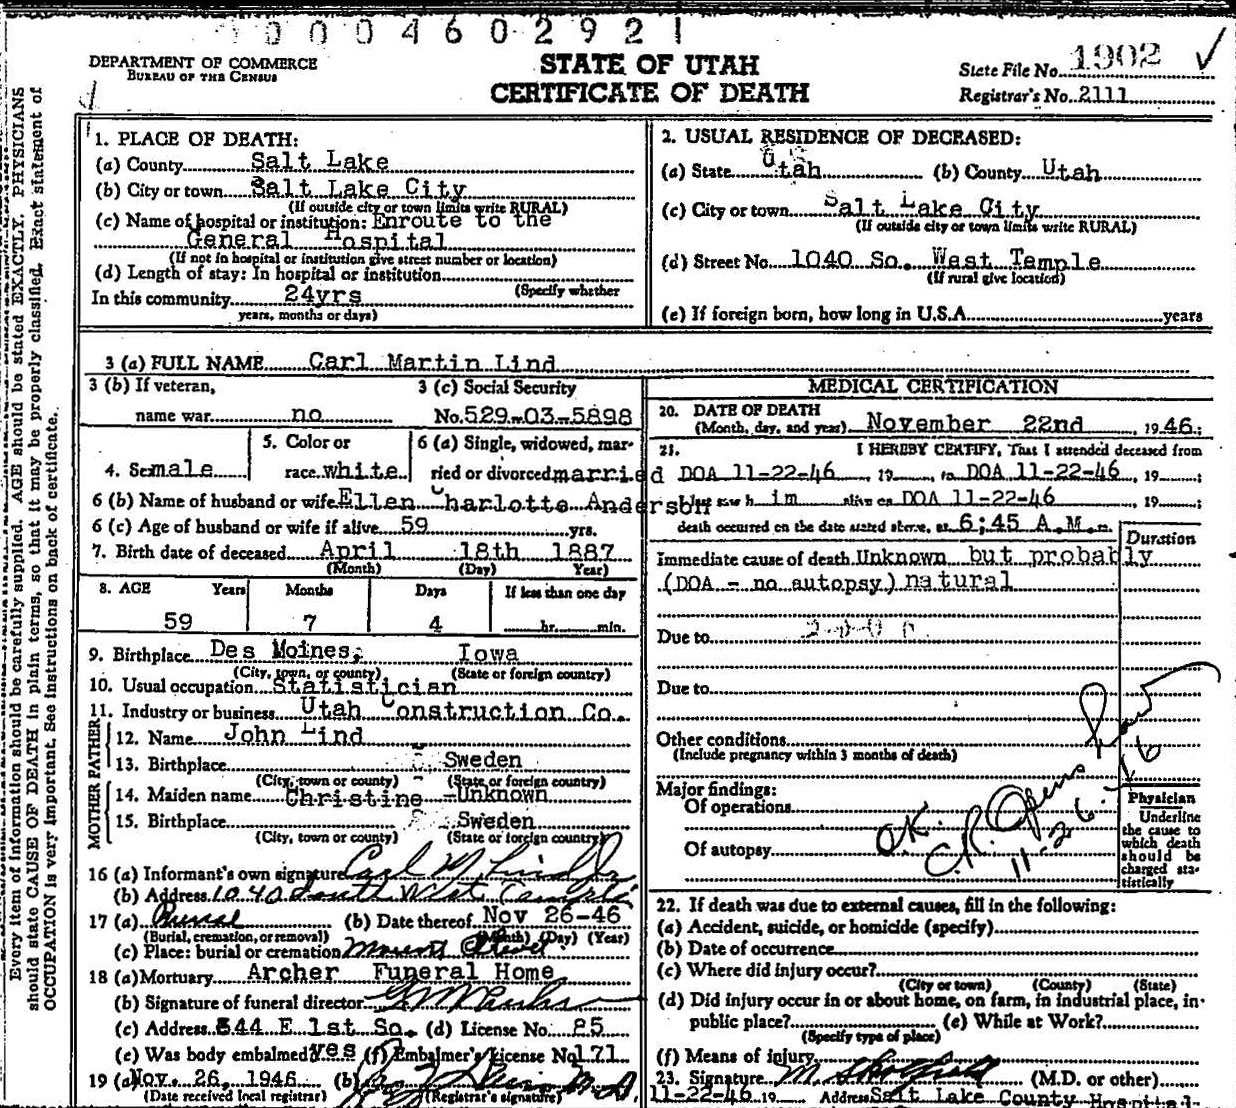 0004602921
DEPARTMENT OF COMMERCE
BUREAU OF THE CENSUS
STATE OF UTAH
CERTIFICATE OF DEATH
State File No. 1902 ✓
Registrar's No. 2111
Every item of information should be carefully supplied. AGE should be stated EXACTLY. PHYSICIANS
should state CAUSE OF DEATH in plain terms, so that it may be properly classified. Exact statement of
OCCUPATION is very important. See instructions on back of certificate.
1. PLACE OF DEATH:
(a) County Salt Lake
(b) City or town Salt Lake City
(If outside city or town limits write RURAL)
(c) Name of hospital or institution: Enroute to the
General Hospital
(If not in hospital or institution give street number or location)
(d) Length of stay: In hospital or institution
(Specify whether
In this community 24yrs
years, months or days)
2. USUAL RESIDENCE OF DECEASED:
(a) State Utah (b) County Utah
(c) City or town Salt Lake City
(If outside city or town limits write RURAL)
(d) Street No. 1040 So. West Temple
(If rural give location)
(e) If foreign born, how long in U.S.A. years
3 (a) FULL NAME Carl Martin Lind
3 (b) If veteran,
name war no
3 (c) Social Security
No. 529-03-5898
4. Sex male
5. Color or
race white
6 (a) Single, widowed, mar-
ried or divorced married
6 (b) Name of husband or wife Ellen Charlotte Anderson
6 (c) Age of husband or wife if alive 59 yrs.
7. Birth date of deceased April 18th 1887
(Month) (Day) Year)
8. AGE Years Months Days If less than one day
59 7 4 hr. min.
9. Birthplace Des Moines, Iowa
(City, town, or county) (State or foreign country)
10. Usual occupation Statistician
11. Industry or business Utah Construction Co.
FATHER
12. Name John Lind
13. Birthplace Sweden
(City, town or county) (State or foreign country)
MOTHER
14. Maiden name Christine -Unknown
15. Birthplace Sweden
(City, town or county) (State or foreign country)
16 (a) Informant's own signature Carl M Lind Jr
(b) Address 1040 South West Temple
17 (a) Burial (b) Date thereof Nov 26-46
(Burial, cremation, or removal) (Month) (Day) (Year)
(c) Place: burial or cremation Mount Olivet
18 (a) Mortuary Archer Funeral Home
(b) Signature of funeral director
(c) Address 544 E 1st So. (d) License No. 25
(e) Was body embalmed? yes (f) Embalmer's License No 171
19 (a) Nov. 26, 1946 (b) M.D.
(Date received local registrar) (Registrar's signature)
MEDICAL CERTIFICATION
20. DATE OF DEATH
(Month, day, and year) November 22nd, 1946;
21. I HEREBY CERTIFY, That I attended deceased from
DOA 11-22-46, 19, to DOA 11-22-46, 19;
I last saw h im alive on DOA 11-22-46, 19;
death occurred on the date stated above, at 6:45 A.M. m.
Duration
Immediate cause of death Unknown but probably
(DOA - no autopsy) natural
Due to
Due to
Other conditions
(Include pregnancy within 3 months of death)
Major findings:
Of operations
Of autopsy
O.K.
11-26-46
Physician
Underline
the cause to
which death
should be
charged sta-
tistically
22. If death was due to external causes, fill in the following:
(a) Accident, suicide, or homicide (specify)
(b) Date of occurrence
(c) Where did injury occur?
(City or town) (County) (State)
(d) Did injury occur in or about home, on farm, in industrial place, in
public place? (e) While at Work?
(Specify type of place)
(f) Means of injury
23. Signature (M.D. or other)
11-22-46 19 Address Salt Lake County Hospital